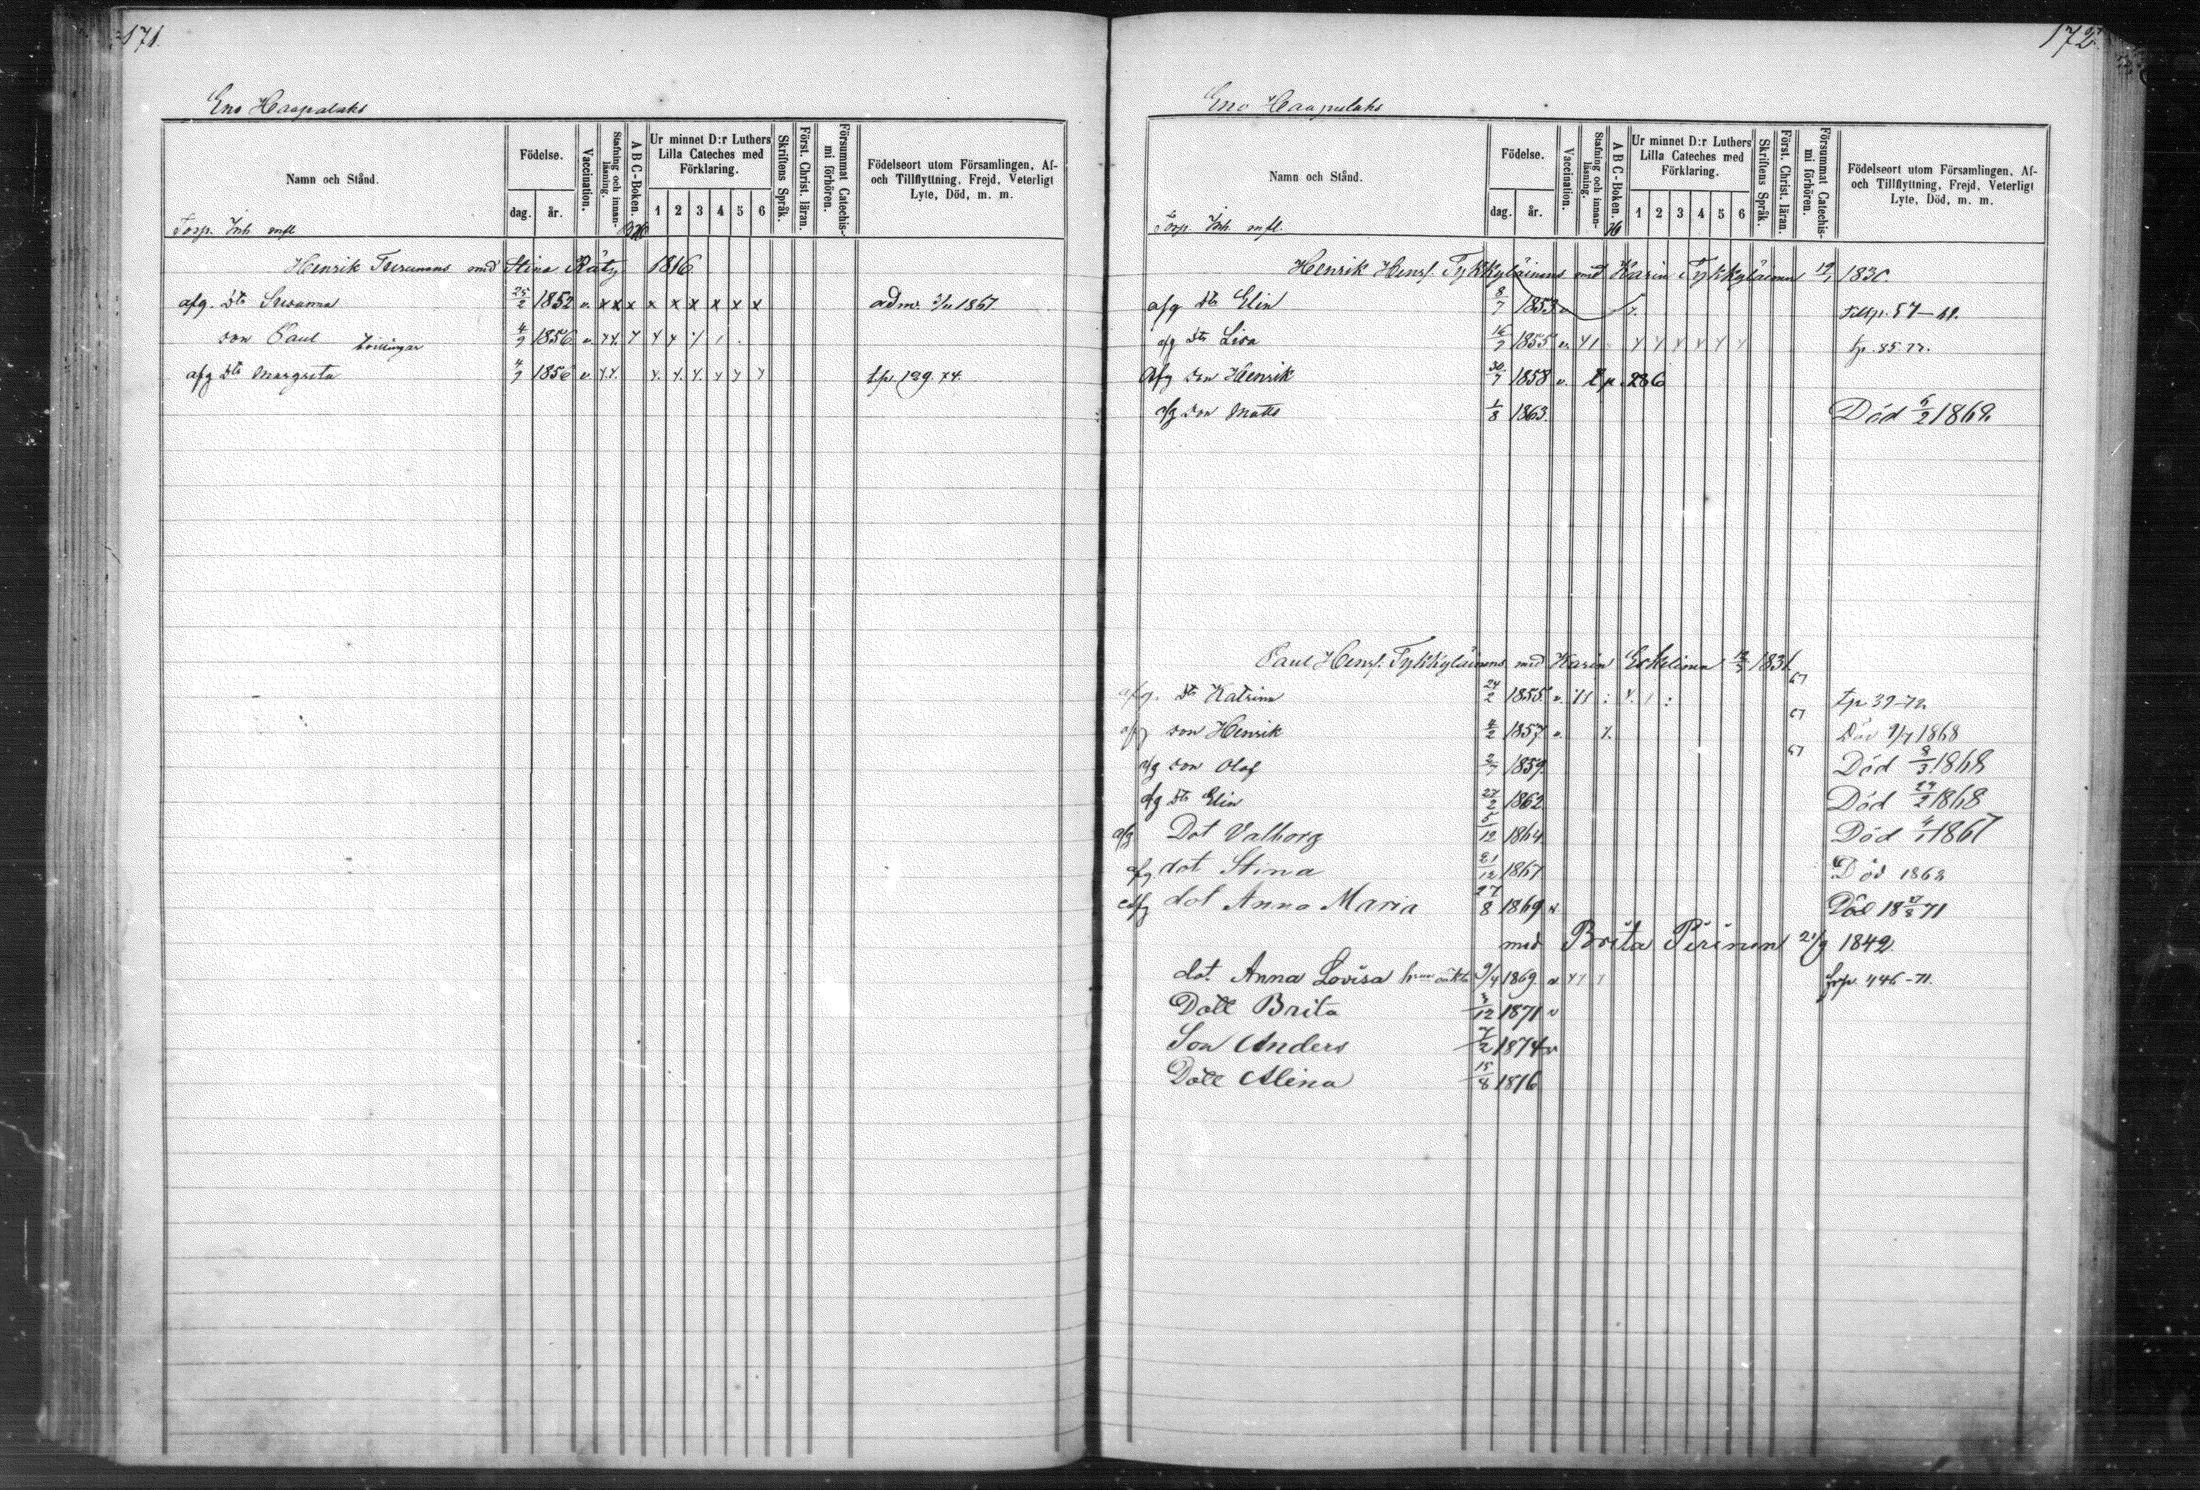 171.
Eno Haapalaks
Namn och Stånd.
Födelse.
dag. år.
Vaccination.
Stafning och innanläsning.
A B C-Boken.
Ur minnet D:r Luthers Lilla Cateches med Förklaring.
1 2 3 4 5 6
Skriftens Språk.
Först. Christ. läran.
Försummat Catechismi förhören.
Födelseort utom Församlingen, Af- och Tillflyttning, Frejd, Veterligt Lyte, Död, m. m.
Torp. Inh. mfl
Henrik med Stina Räty 1816
afg. Dtr Susanna 25/2 1852 v. x x x x x x x x x adm. 1867.
son Paul tvillingar 4/9 1856 v.
afg Dtr Margreta 4/9 1856 v. tp. 129. 74.
172.
Eno Haapalaks
Namn och Stånd.
Födelse.
dag. år.
Vaccination.
Stafning och innanläsning.
A B C-Boken.
Ur minnet D:r Luthers Lilla Cateches med Förklaring.
1 2 3 4 5 6
Skriftens Språk.
Först. Christ. läran.
Försummat Catechismi förhören.
Födelseort utom Församlingen, Af- och Tillflyttning, Frejd, Veterligt Lyte, Död, m. m.
Torp. Inh. mfl.
Henrik Hensf. Tykkyläinens med Karin Tykkyläinen 1830.
afg Dtr Elin 8/7 1853
afg Dtr Lisa 16/9 1855 v. tp. 85. 77.
Afg son Henrik 30/7 1858 v. tp. 286
afg son Matts 1/8 1863. Död 5/2 1868
Paul Hensf. Tykkyläinens med Karin Eskelinen 12/3 1831.
67
afg. Dtr Katrina 24/2 1855 v. tp 39-72
67
afg son Henrik 4/2 1857 v. Död 9/4 1868
67
afg son Olof 2/7 1859. Död 8/3 1868
afg Dtr Elin 27/2 1862 Död 29/2 1868
afg Dot Valborg 5/12 1864. Död 4/1 1867
afg dot Stina 21/12 1867 Död 1868
afg dot Anna Maria 27/8 1869 v Död 1871
med Brita Pirinen 21/9 1842
dot Anna Lovisa 9/4 1869 v frp. 446-71.
Dott Brita 3/12 1871 v
Son Anders 7/2 1874 v
Dott Alina 15/8 1876